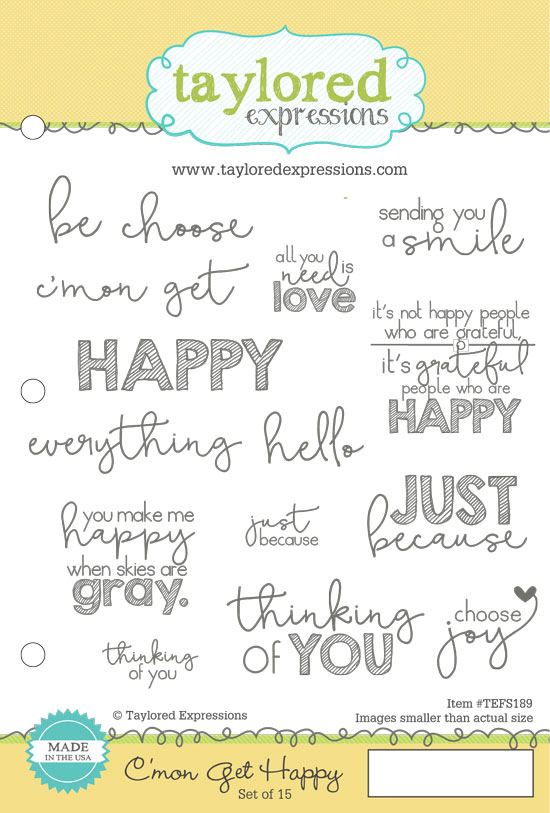 taylored
expressions
www.tayloredexpressions.com
be choose
sending you
a smile
all you
need is
love
c'mon get
it's not happy people
who are grateful,
it's grateful
people who are
HAPPY
HAPPY
everything hello
JUST
because
you make me
happy
when skies are
gray.
just
because
thinking
OF YOU
choose
joy
thinking
of you
Item #TEFS189
© Taylored Expressions
Images smaller than actual size
MADE
IN THE USA
C'mon Get Happy
Set of 15